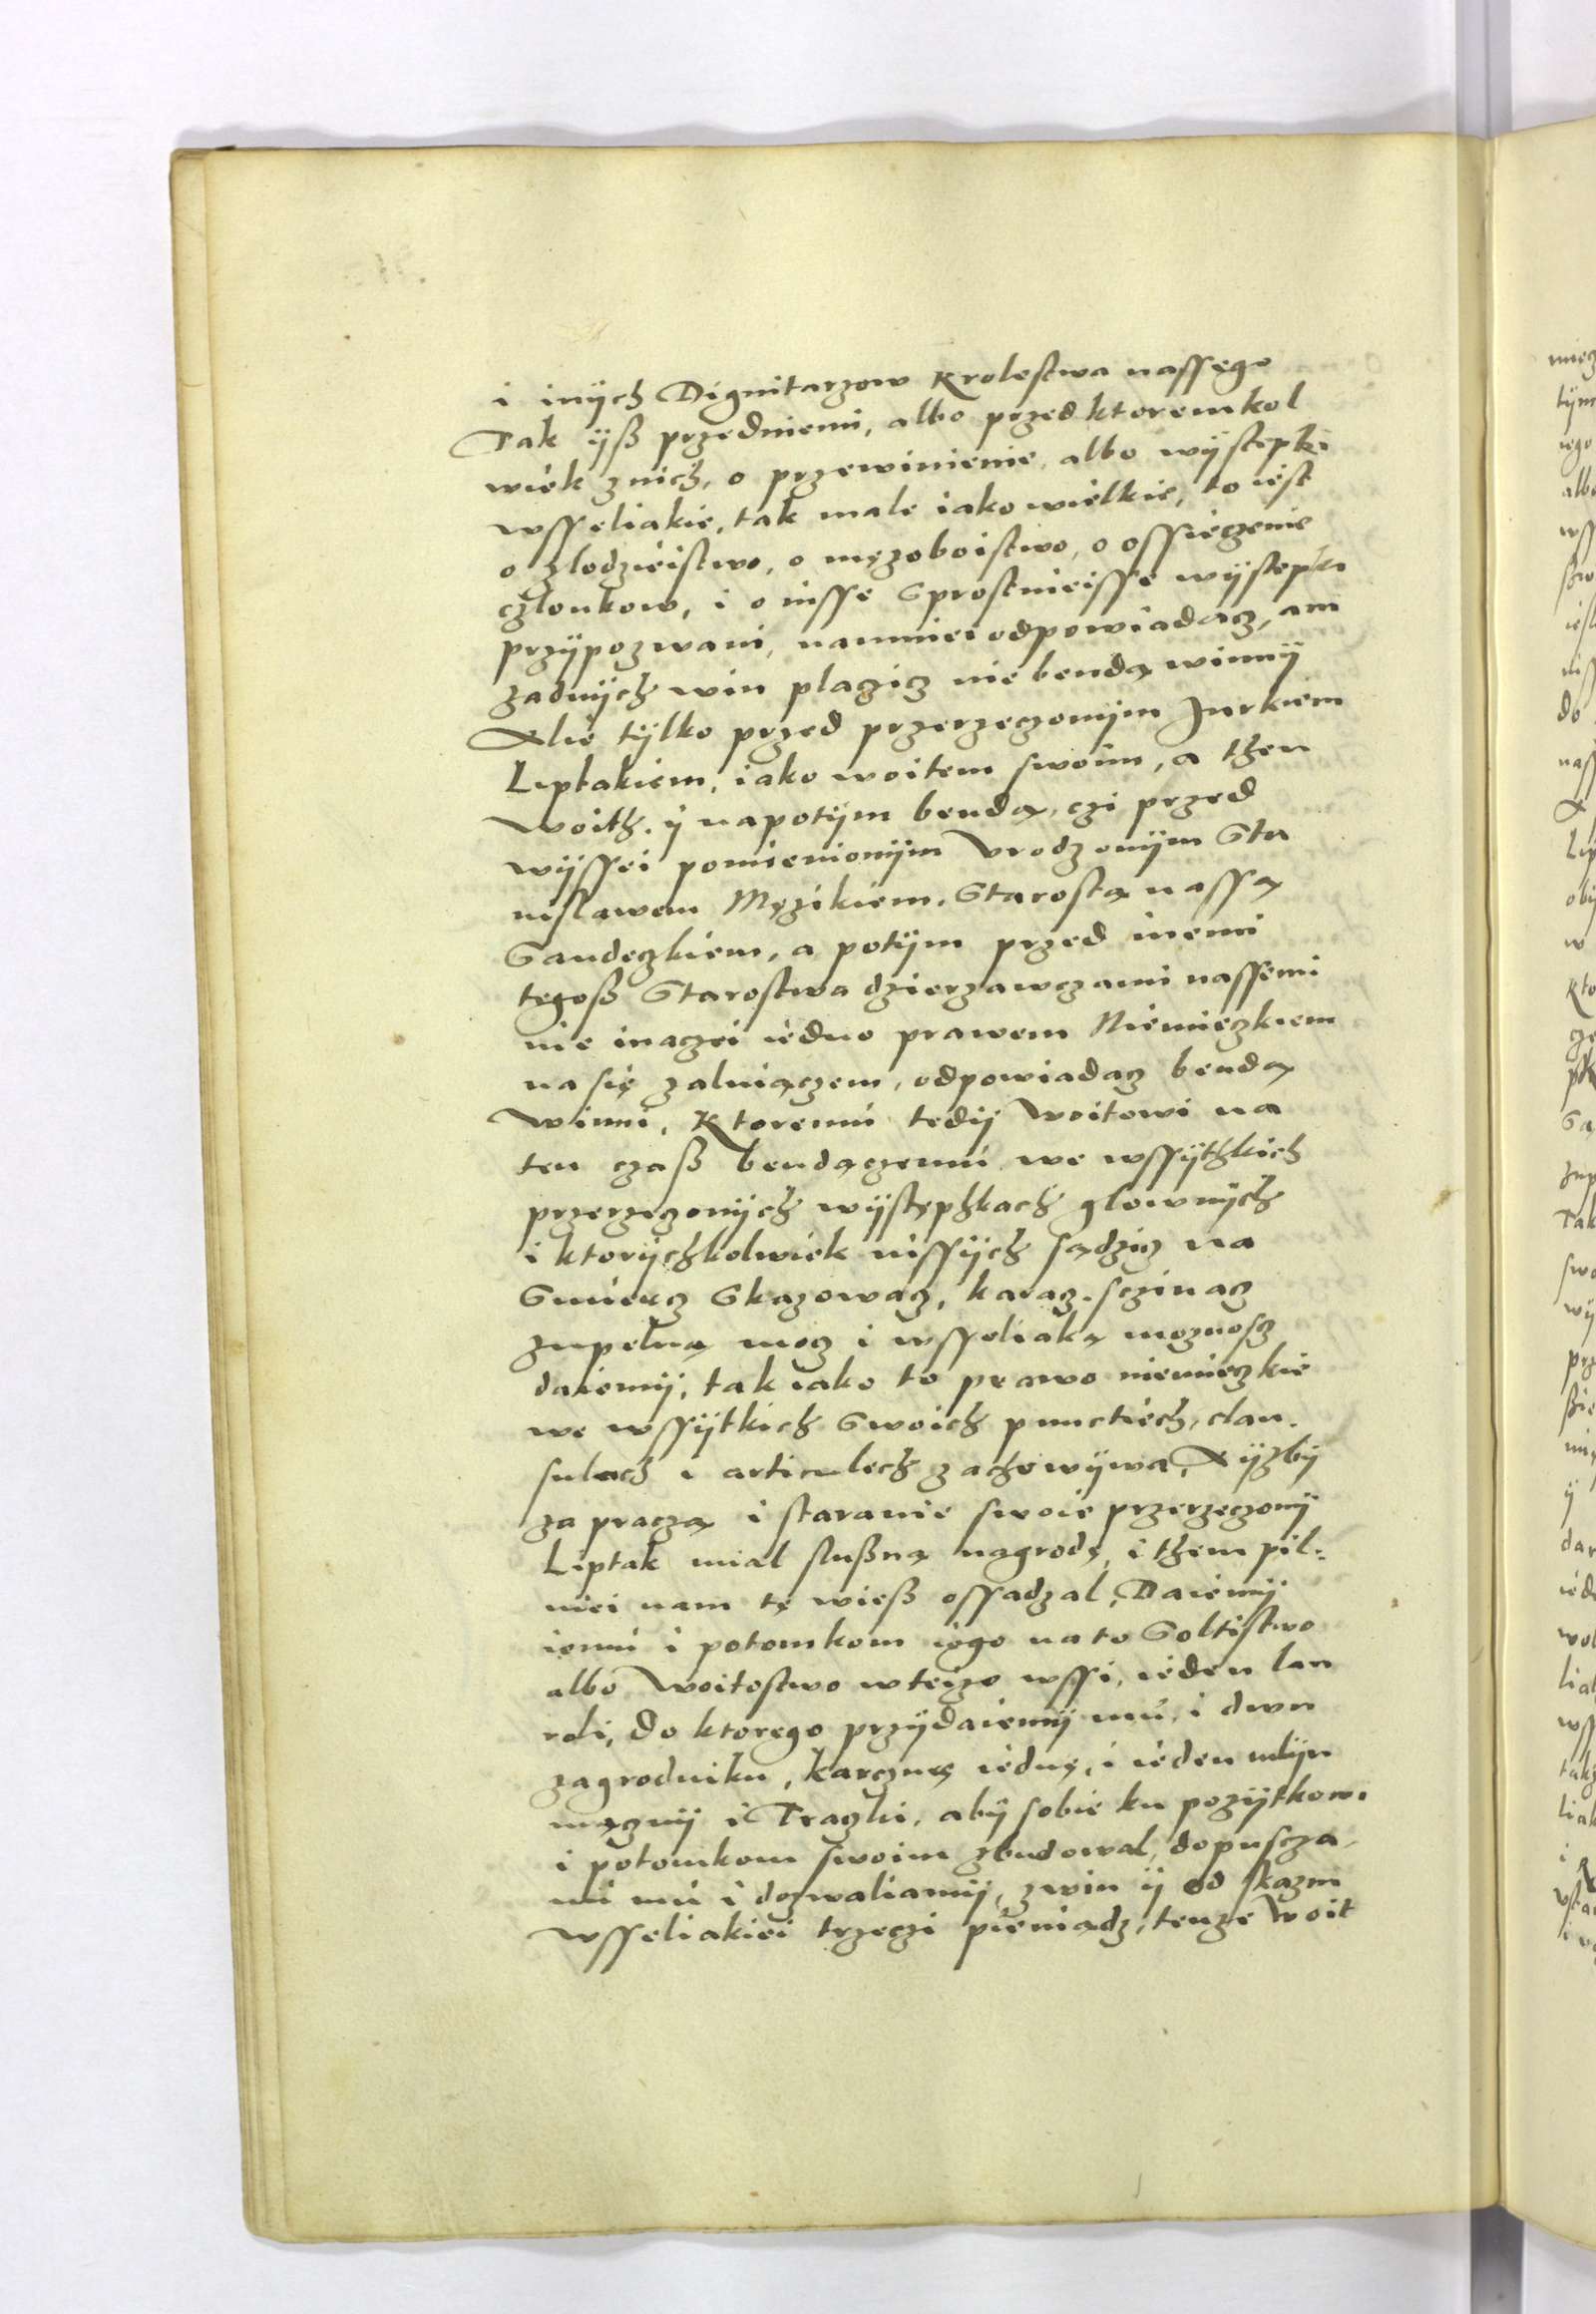 i inÿch Dignitarzow Krolestwa nassęgo
Tak ÿß przedniemi, albo przed ktoremkol
wiek znich, o przewinienie albo wÿstepki
wsseliakie, tak male iako wielkie, to iest
o zlodzieistwo, o męzoboistwo, o ossieczenie
członkow, i o insse Sprostnieisse wÿstepki
przÿpozwani, namniei odpowiadacz, ani
żadnÿch win placzicz nie bendą winnÿ
Alie tÿlko przed przerzeczonÿm Jurkiem
Liptakiem, iako woitem swoim, a then
woith. ÿ napotÿm bendą, czi przed
wÿssei pomienionÿm Vrodzonÿm Sta
nislawem Męzikiem. Starostą nassą
Sandeczkiem, a potÿm przed inemi
tegoß Starostwa dzierzawczami nassemi
nie inaczei iedno prawem Niemieczkiem
na się zalniączem, odpowiadacz bendą
winni, Ktoremu tedÿ Woitowi na
ten czaß bendączemu we wssÿthkich
przerzeczonÿch wÿstęphkach głownÿch
i ktorÿchkolwiek nissÿch sądzicz na
Smiercz Skazowacz, karacz. sczinacz
zupelną mocz i wsseliaką moznoscz
daiemÿ, tak iako to prawo niemieczkie
we wssÿtkich Swoich punctiech, clau.
sulach i articulech zachowÿwa, A ÿzbÿ
za praczą i staranie swoie przerzeczonÿ
Liptak mial slußną nagrodę, i them pil:
niei nam tę wieß ossadzal, Daiemÿ
iemu i potomkom iego na to Soltistwo
albo Woitostwo wteize wssi, ieden lan
roli, Do ktorego przÿdaiemÿ mu, i dwu
zagrodniku, karcznię iednę, i ieden mlÿn
mącznÿ i Traczki, abÿ sobie ku pozÿtkowi
i potomkom swoim zbudowal, dopuscza.
mi mu i dozwaliamÿ, zwin ÿ od skazni
wsseliakiei trzeczi pieniądz, tenze Woit